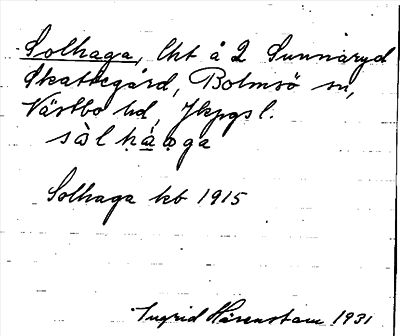 Solhaga, lht å 2 Sunnaryd
Skattegård, Bolmsö sn,
Västbo hd, Jkpgs l.
sò̀lhá̱ǫga
Solhaga kb 1915
Ingrid Hårenstam 1931